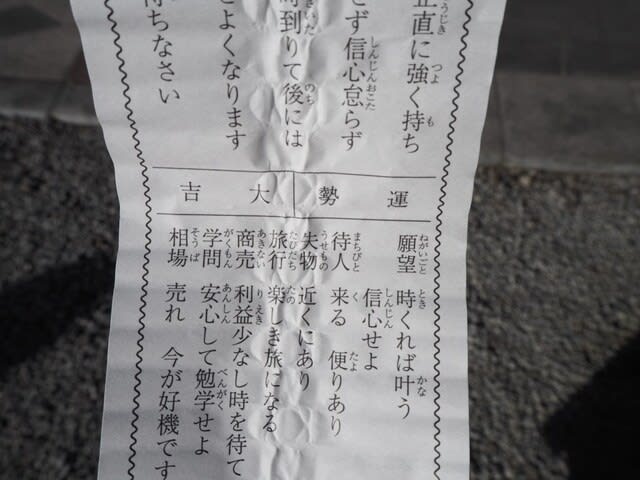 正直に強く持ち
せず信心怠らず
到りて後には
よくなります
ちなさい
運勢 大吉
願望 時くれば叶う
信心せよ
待人 来る 便りあり
失物 近くにあり
旅行 楽しき旅になる
商売 利益少なし時を待て
学問 安心して勉学せよ
相場 売れ 今が好機です